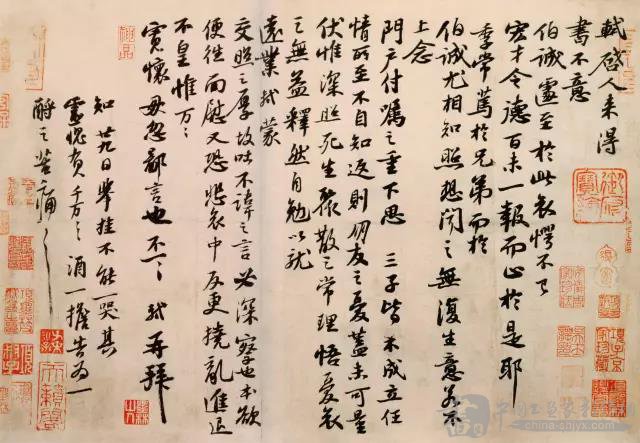 軾啓人來得
書不意
伯誠遽至於此哀愕不已
宏才令德百未一報而止於是耶
季常篤於兄弟而於
伯誠尤相知照想聞之無復生意若不
上念
門户付囑之重下思三子皆不成立任
情所至不自知返則朋友之憂蓋未可量
伏惟深照死生聚散之常理悟憂哀
之無益釋然自勉以就
遠業軾蒙
交照之厚故吐不諱之言必深察也本欲
便往面慰又恐悲哀中反更撓亂進退
不皇惟万々
寬懷毋忽鄙言也不一々軾再拜
知廿九日舉挂不能一哭其
靈愧負千万々酒一擔告為一
酹之苦痛々々
china-shjyx.com